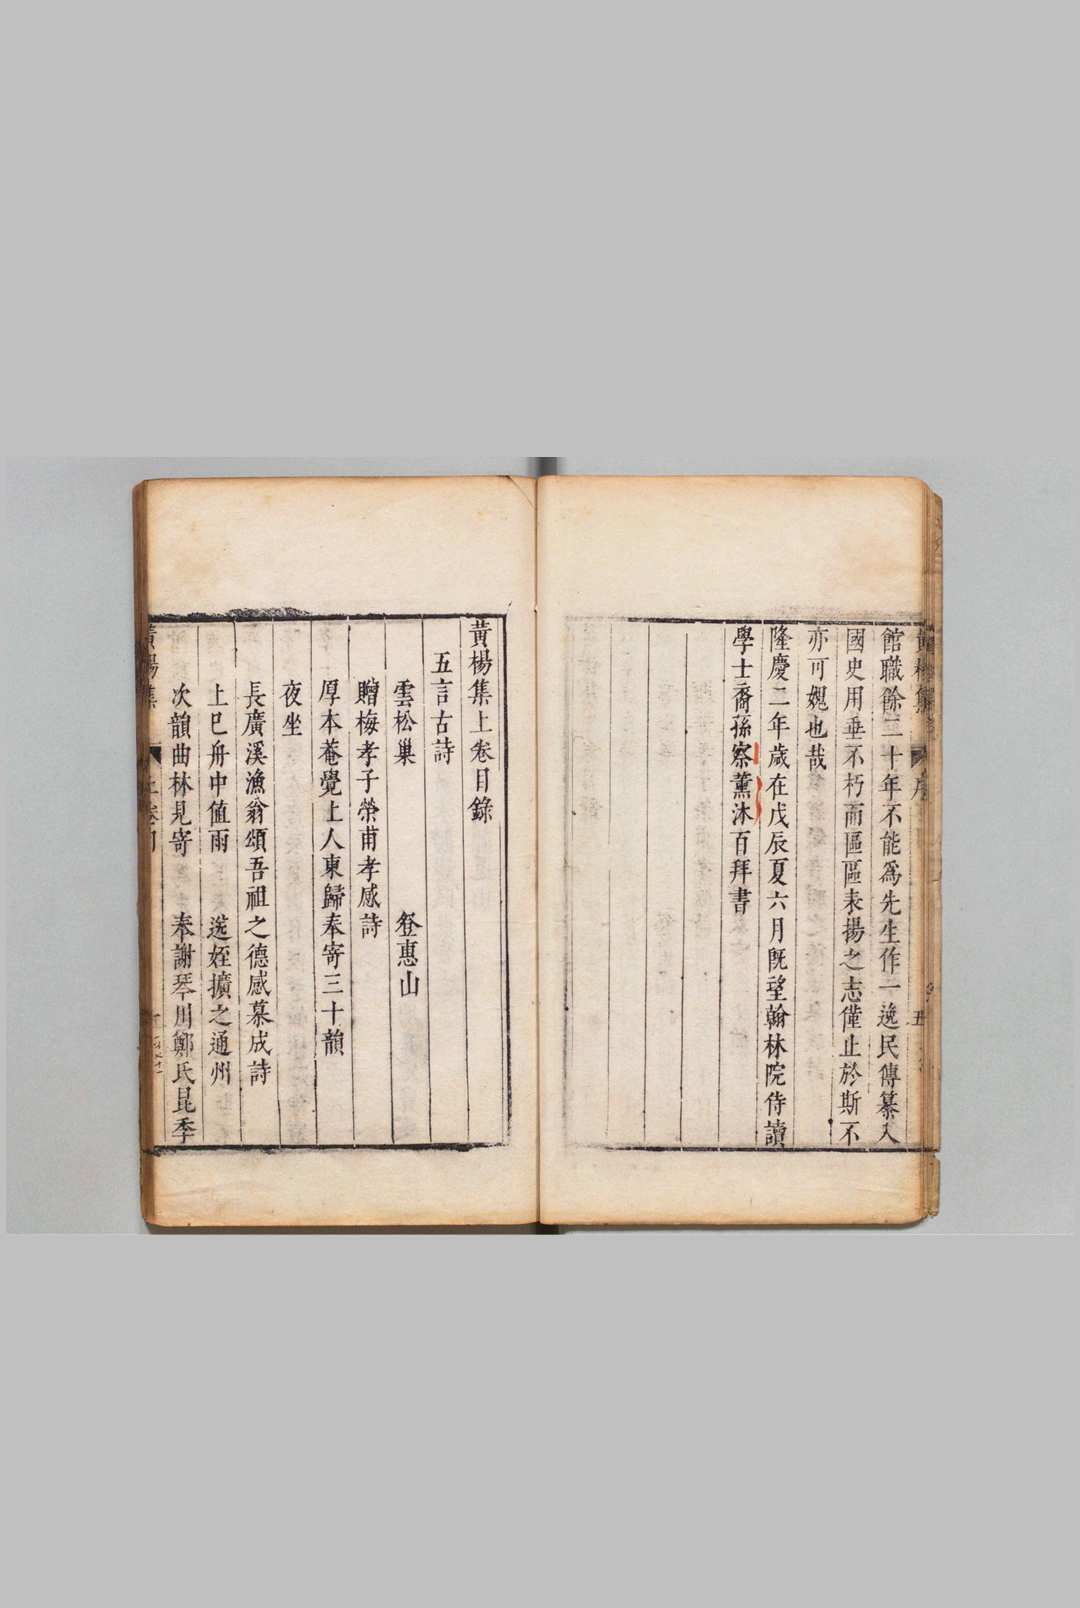 館職餘三十年不能爲先生作一逸民傳纂入
國史用垂不朽而區區表揚之志僅止於斯不
亦可媿也哉
隆慶二年歲在戊辰夏六月既望翰林院侍讀
學士裔孫察薰沐百拜書
黃楊集上卷目錄
五言古詩
雲松巢 登惠山
贈梅孝子榮甫孝感詩
厚本菴覺上人東歸奉寄三十韻
夜坐
長廣溪漁翁頌吾祖之德感慕成詩
上巳舟中值雨 送姪擴之通州
次韻曲林見寄 奉謝琴川鄭氏昆季
黃楊集